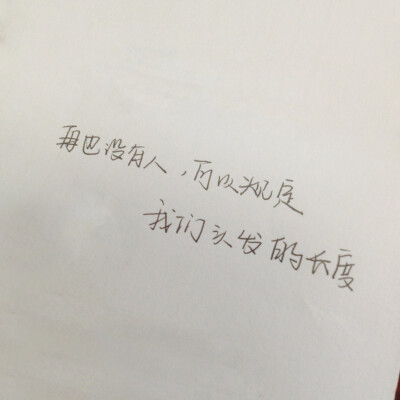 再也没有人，可以规定
我们头发的长度